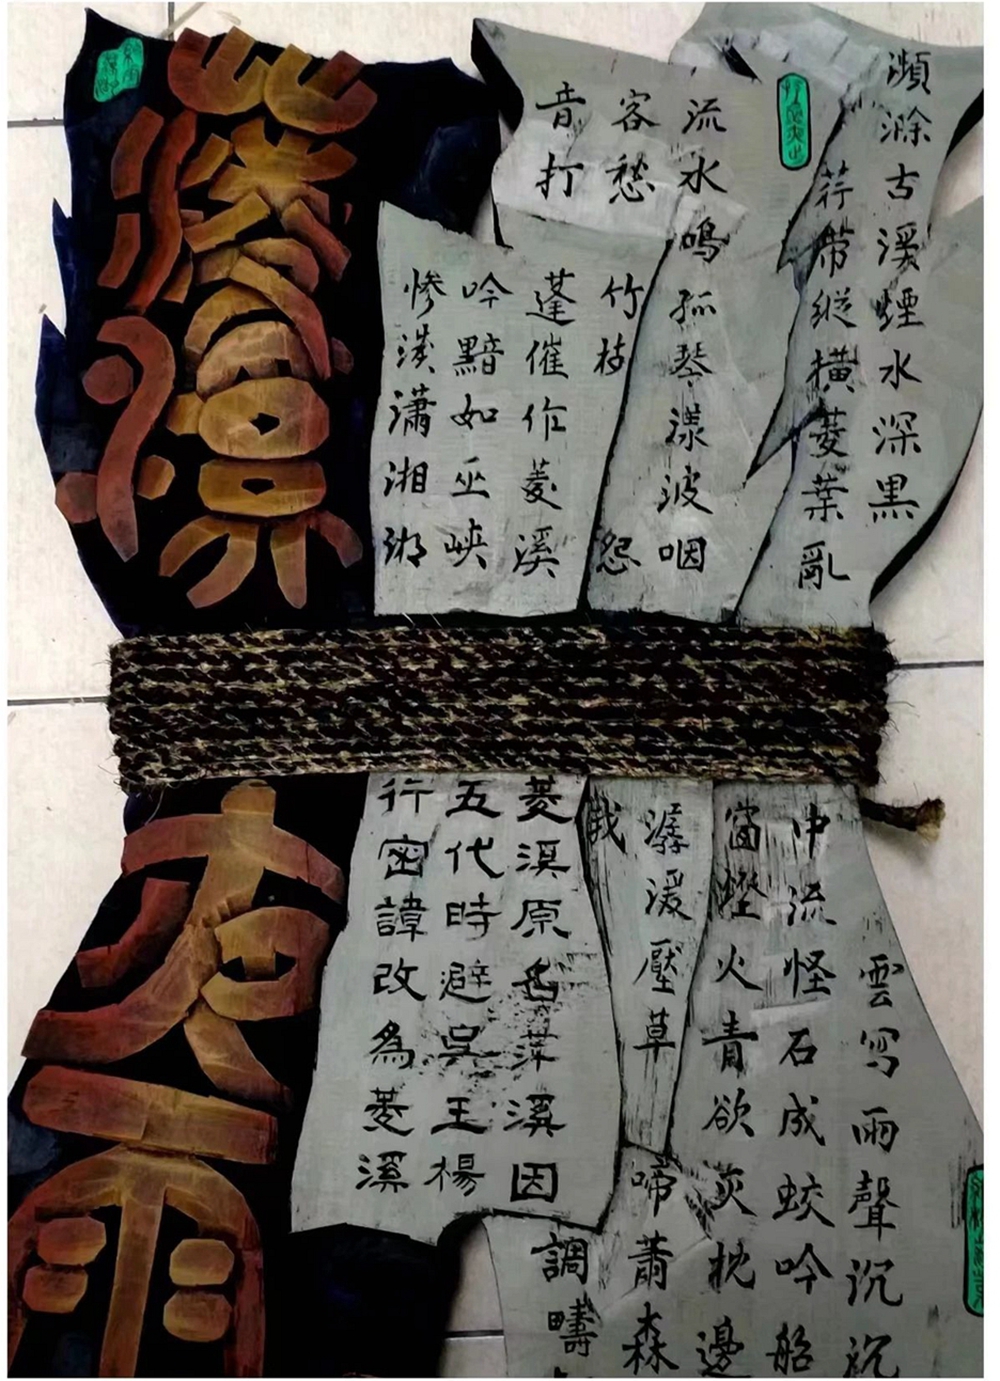 瀕滁古溪煙水深黑
荇帶縱橫菱葉亂
流水鳴孤琴漾波咽
客愁竹枝怨
音打蓬催作菱溪
吟黯如巫峽
慘淡瀟湘
雲寫雨聲沉沉
中流怪石成蛟吟船
窗燈火青欲灰枕邊
潺湲壓草啼蕭森
調疇
菱溪原名荇溪因
五代時避吳王楊
行密諱改為菱溪
菱溪夜雨